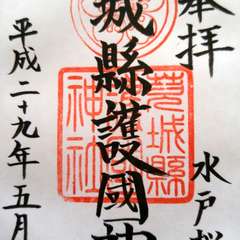 奉拝
水戸桜
城縣護國神
平成二十九年五月
茨城縣
神社